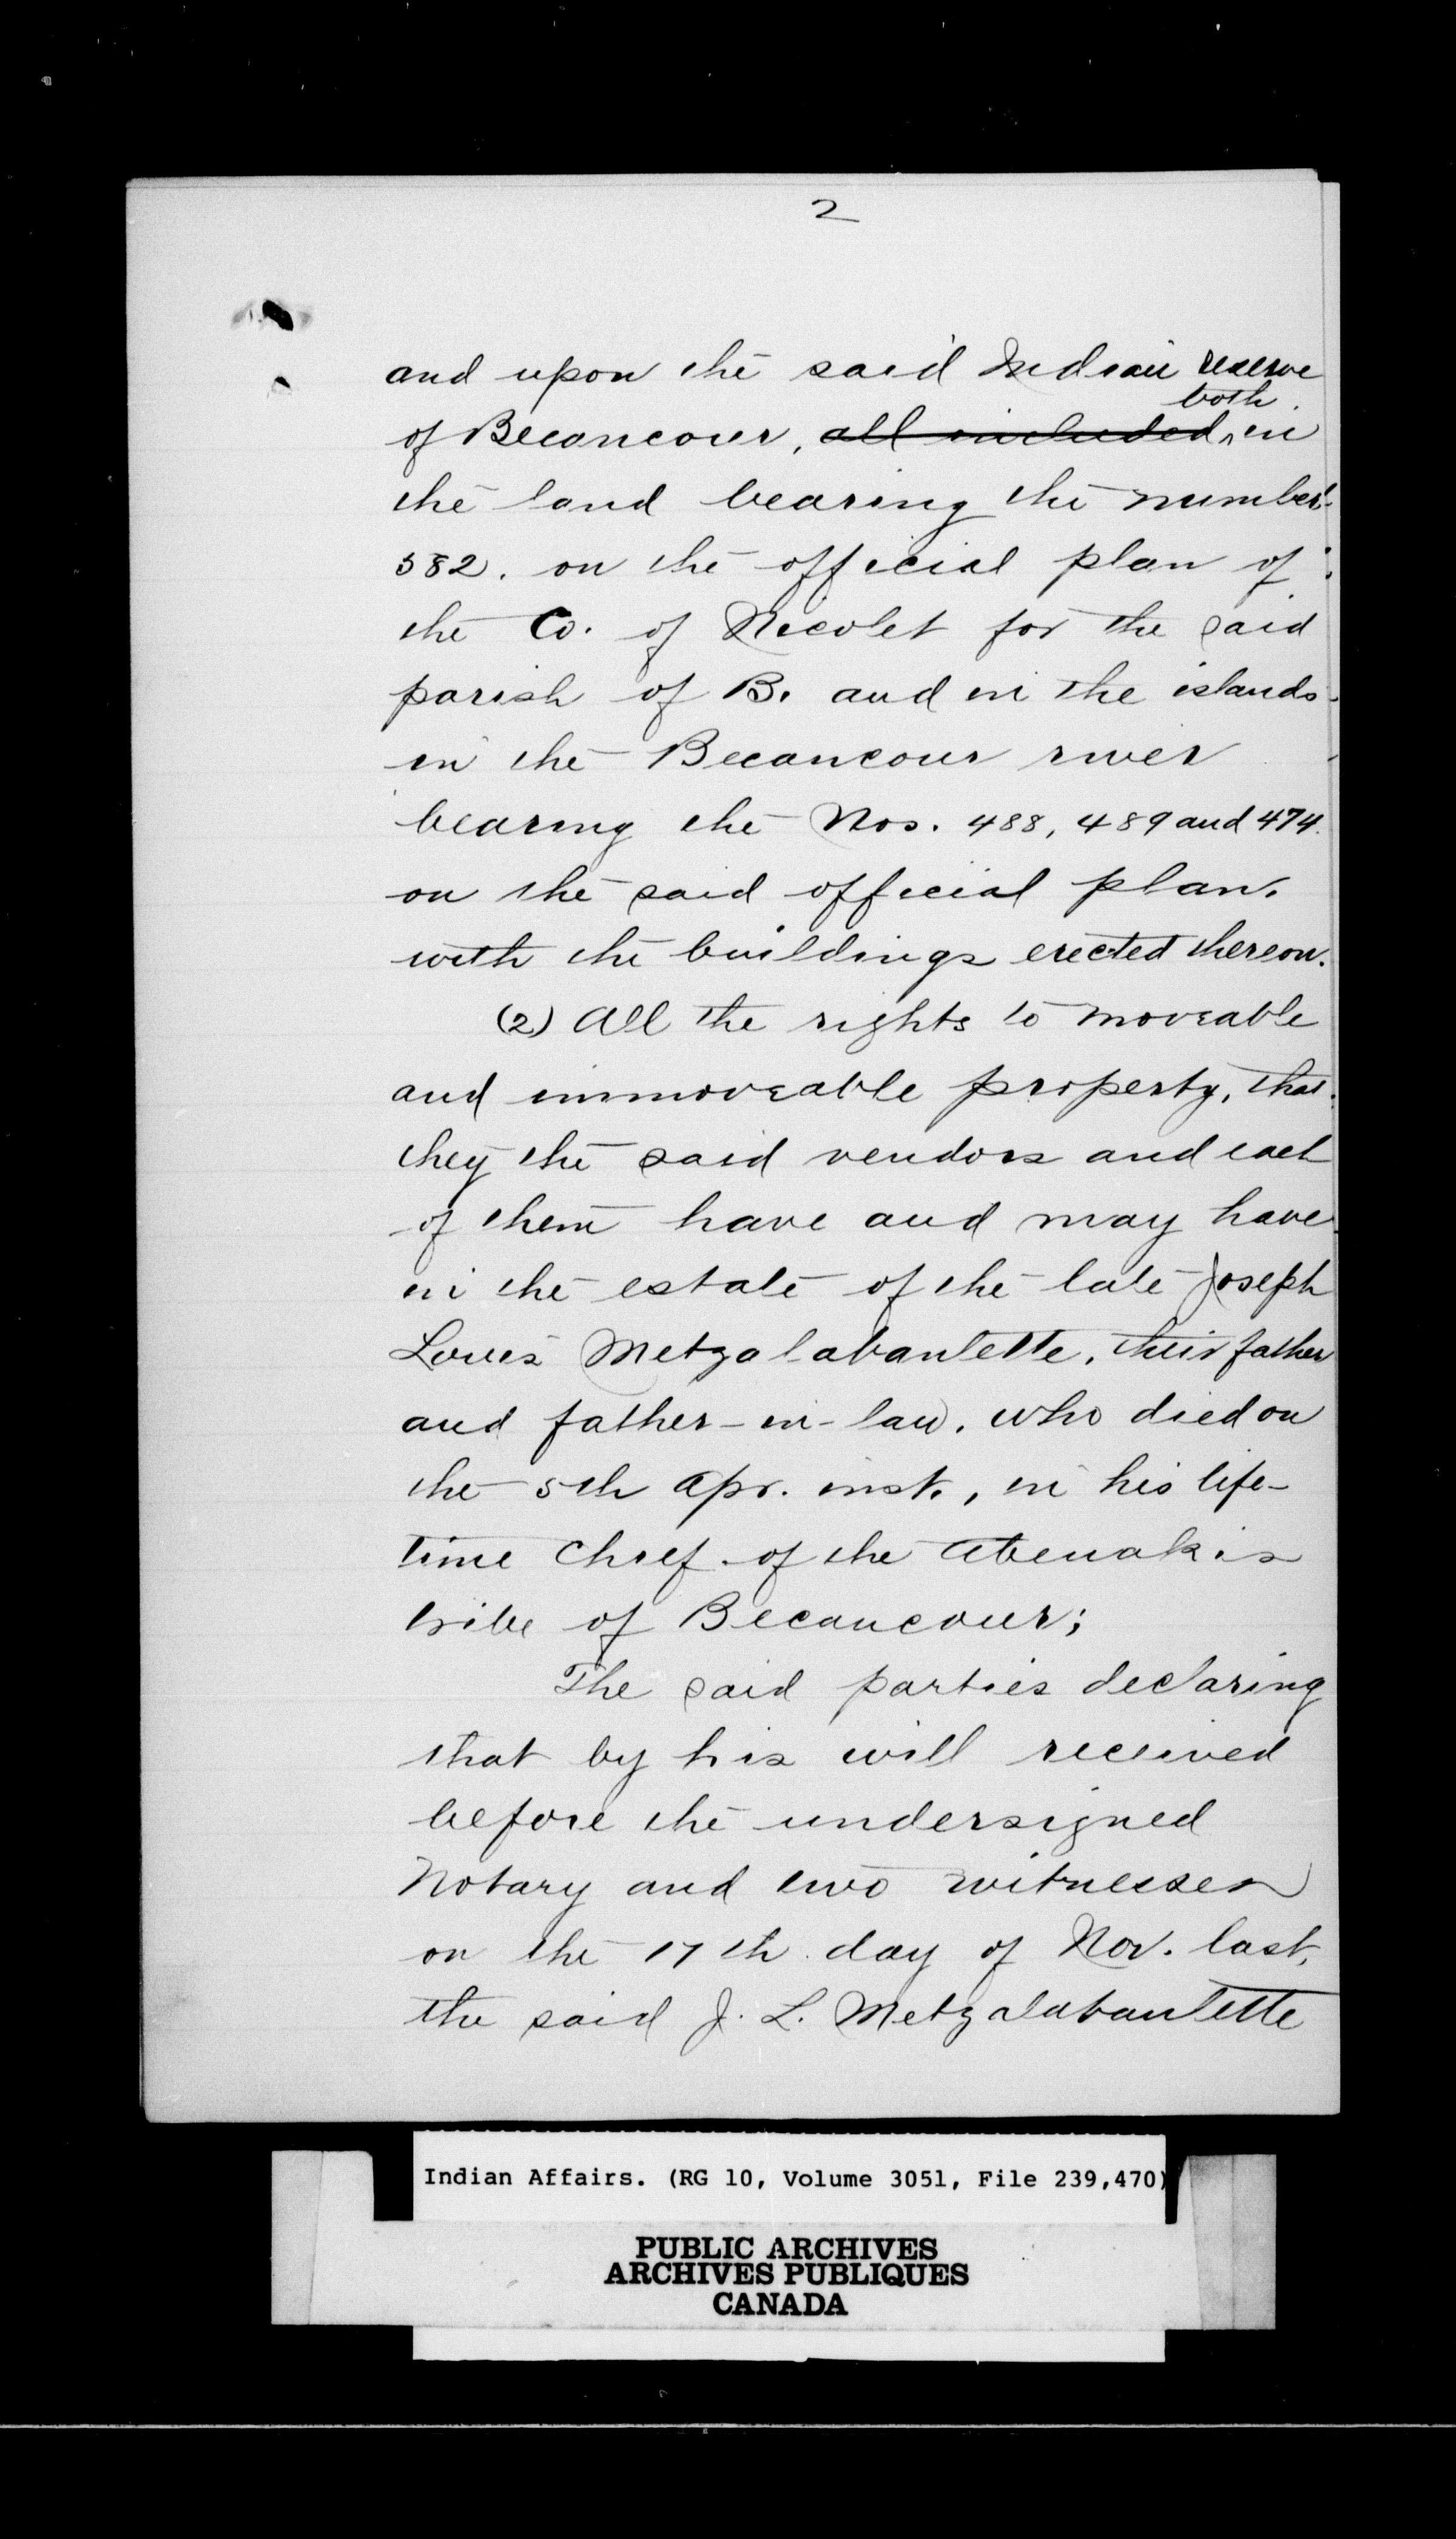 2
and upon the said Indian reserve
both
of Becancour, all included, in
the land bearing the number
582. on the official plan of
the Co. of Nicolet for the said
parish of B. and in the islands
in the Becancour river
bearing the Nos. 488, 489 and 474
on the said official plan,
with the buildings erected thereon.
(2) All the rights to moveable
and immoveable property, that
they the said vendors and each
of them have and may have
in the estate of the late Joseph
Louis Metzalabanlette, their father
and father-in-law, who died on
the 5th Apr. inst., in his life-
time Chief of the Abenakis
tribe of Becancour;
The said parties declaring
that by his will received
before the undersigned
Notary and two witnesses
on the 17th day of Nov. last,
the said J. L. Metzalabanlette
Indian Affairs. (RG 10, Volume 3051, File 239,470)
PUBLIC ARCHIVES
ARCHIVES PUBLIQUES
CANADA